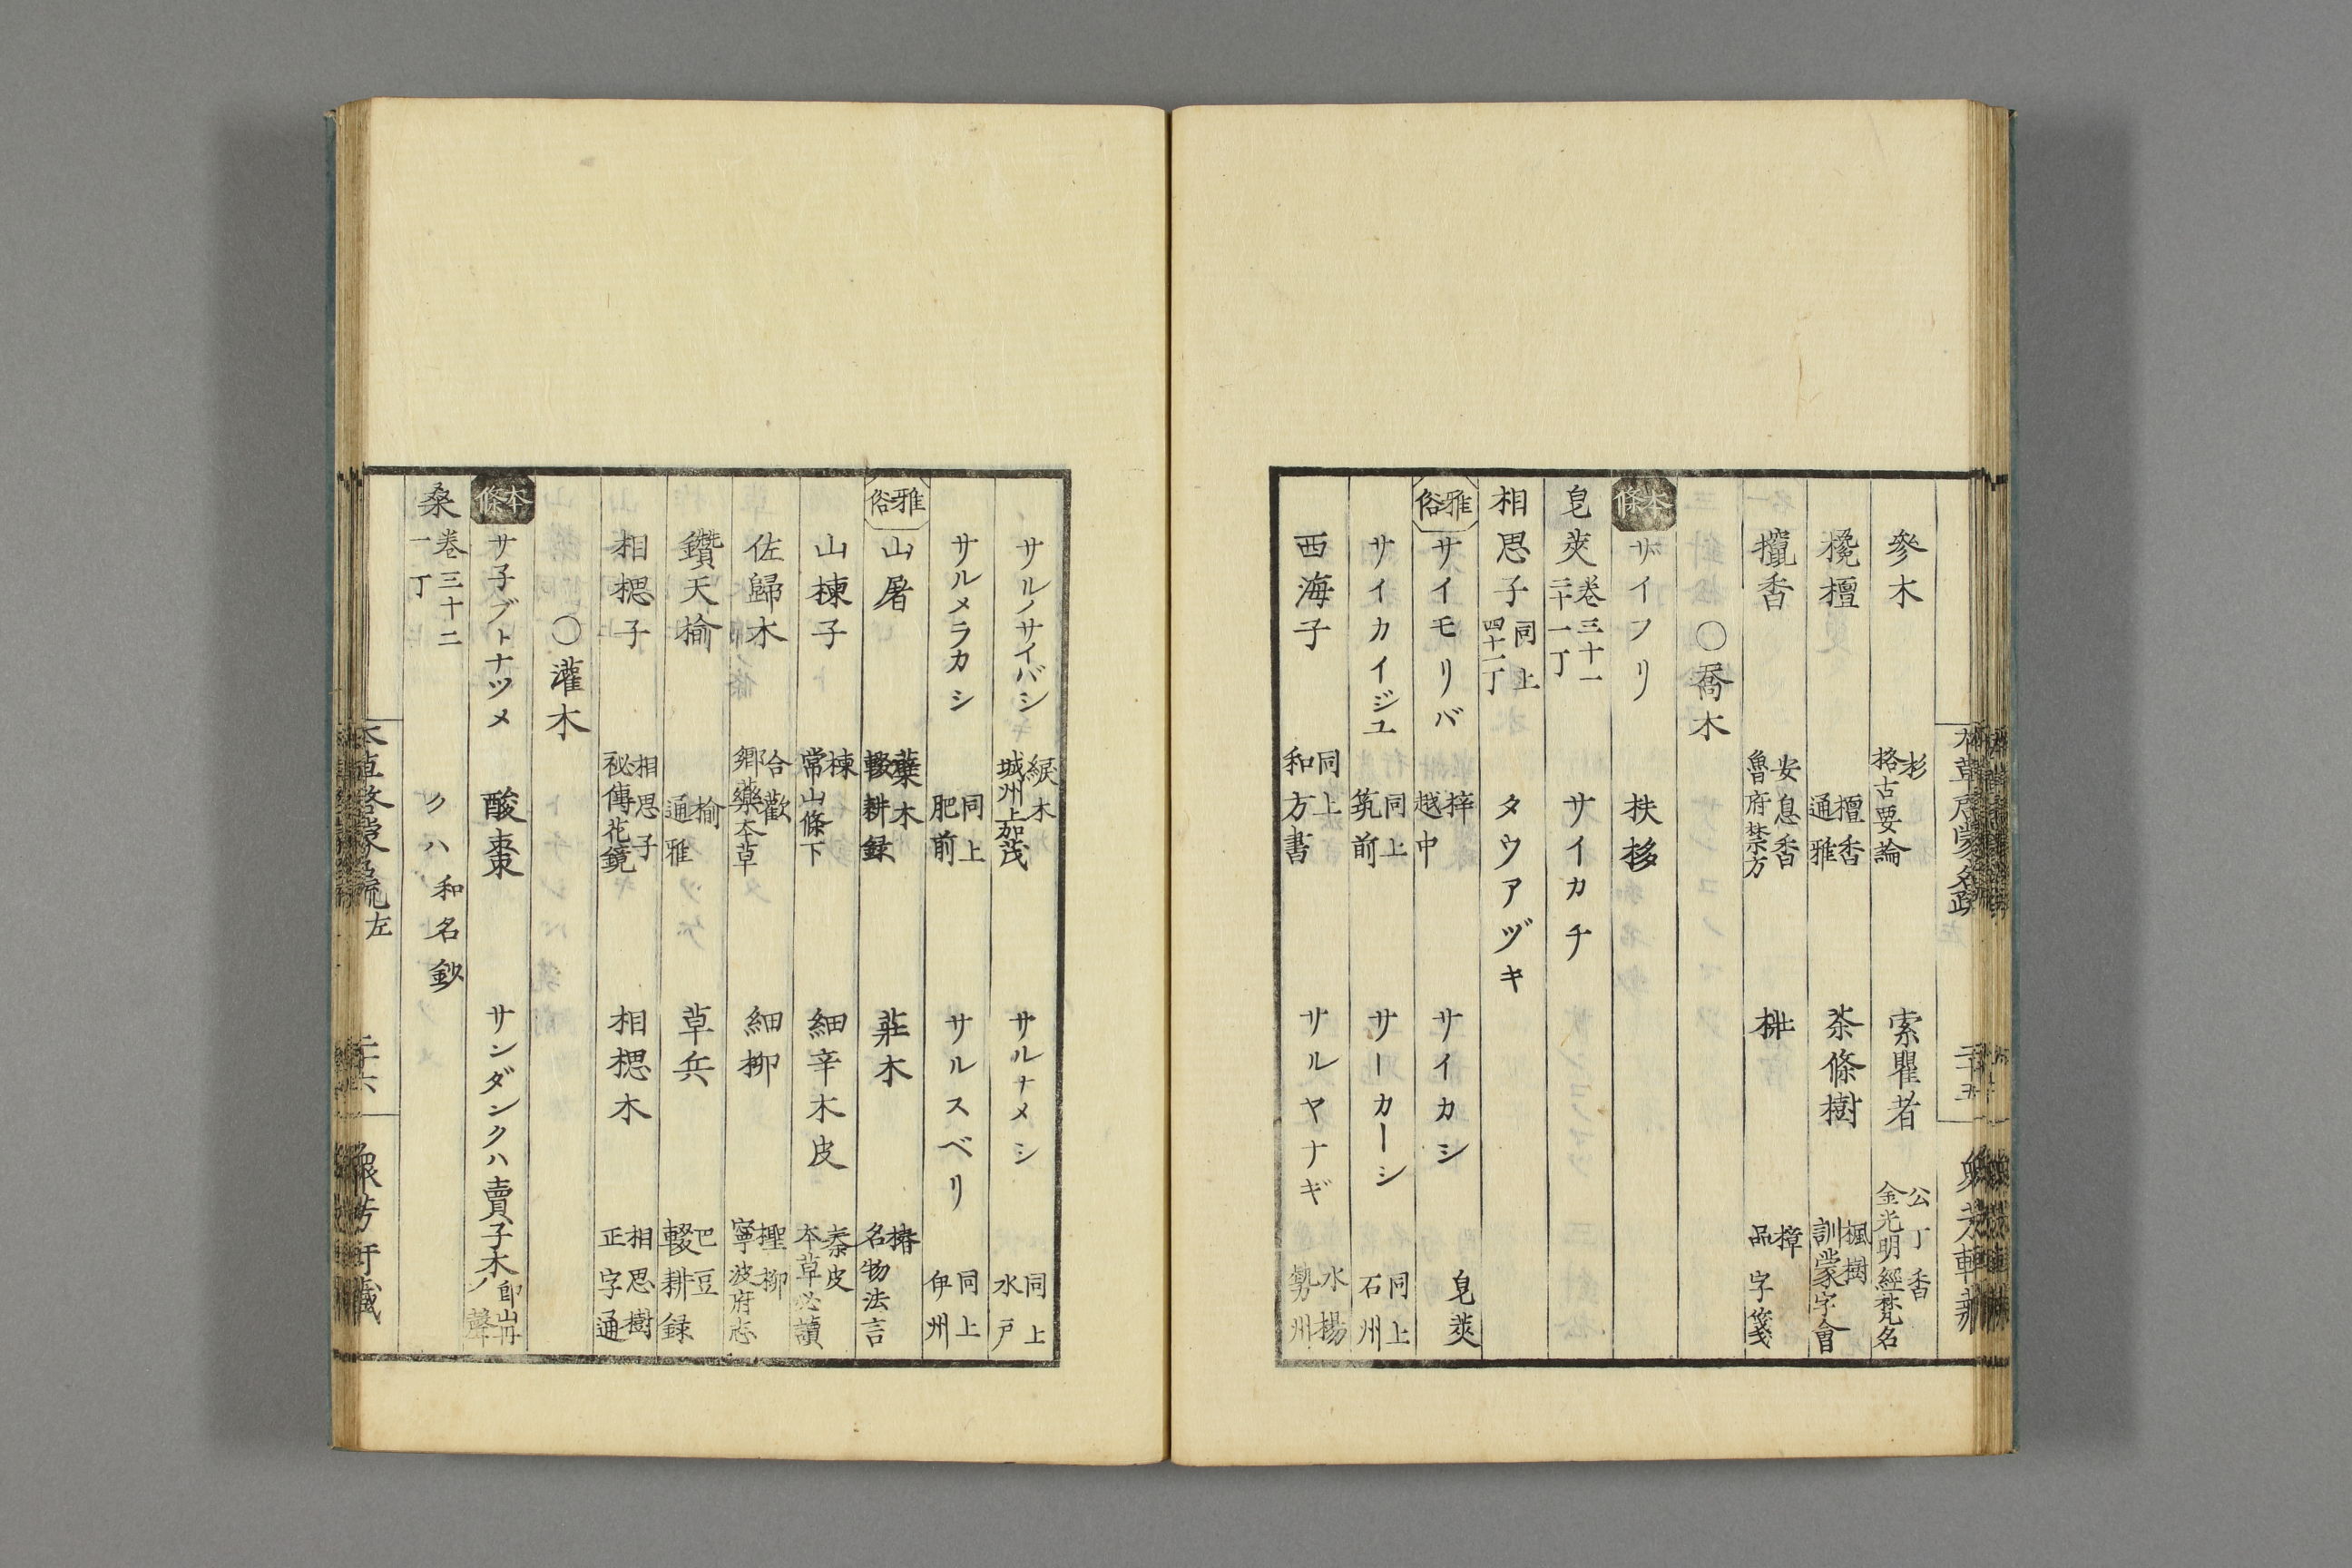 參木 杉 格古要論 索瞿者 公丁香 金光明經梵名
欃檀 檀香 通雅 茶條樹 楓樹 訓蒙字會
攬香 安息香 魯府禁方 樟 品字箋
〇喬木
本條 サイフリ 扶栘
皂莢 卷三十一 二十一丁 サイカチ
相思子 同上 四十二丁 タウアヅキ
雅俗 サイモリバ 梓 越中 サイカシ 皂莢
サイカイジユ 同上 筑前 サーカーシ 同上 石州
西海子 同上 和方書 サルヤナギ 水楊 勢州
サルノサイバシ 綟木 城州上加茂 サルナメシ 同上 水戸
サルメラカシ 同上 肥前 サルスベリ 同上 伊州
雅俗 山屠 蘖木 輟耕録 莊木 椿 名物法言
山楝子 楝 常山條下 細辛木皮 秦皮 本草必讀
佐歸木 合歡 郷藥本草 細柳 檉柳 寧波府志
鑽天榆 榆 通雅 草兵 巴豆 輟耕録
相楒子 相思子 秘傳花鏡 相楒木 相思樹 正字通
〇灌木
本條 サ子ブトナツメ 酸棗 サンダンクハ 賣子木 即山丹ノ聲
桑 卷三十二 一丁 クハ 和名鈔